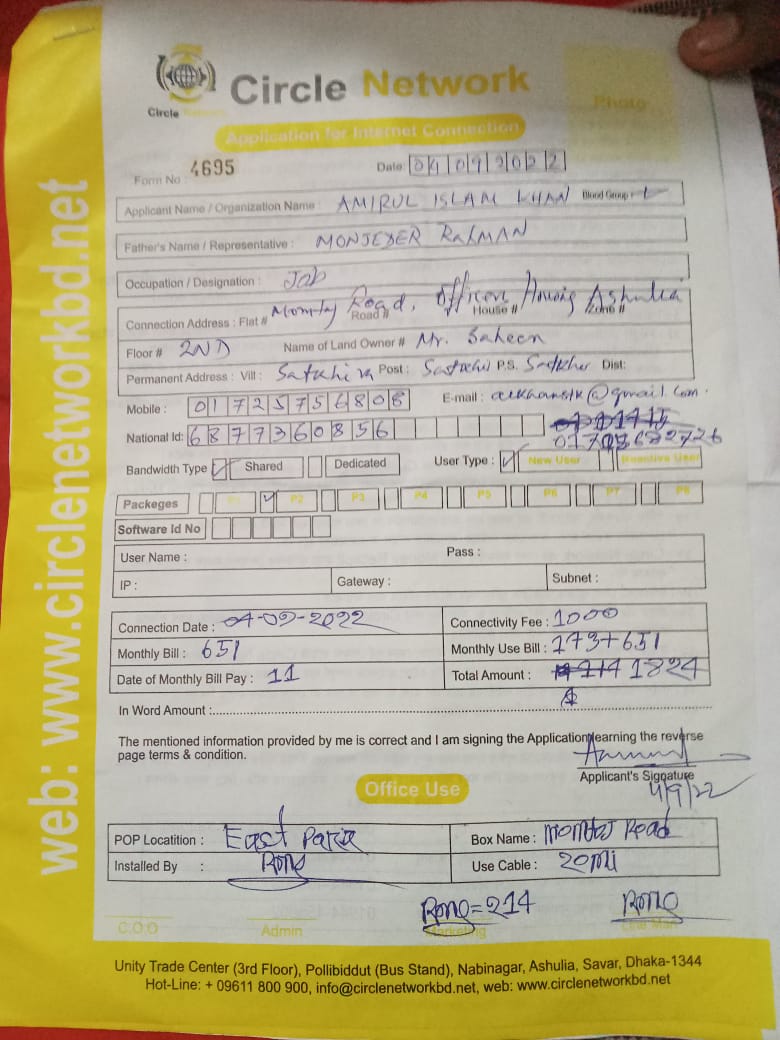 Circle Network
Circle Network
Photo
Application for Internet Connection
Form No : 4695
Date: 04092022
Applicant Name / Organization Name : AMIRUL ISLAM KHAN Blood Group :
Father's Name / Representative : MONJEDER RAHMAN
Occupation / Designation : Job
Connection Address : Flat # Road # House # Zone # Road, Housing Ashulia
Floor # 2ND Name of Land Owner # Mr. Saheen
Permanent Address : Vill : Satkhira Post : P.S. Dist:
Mobile : 01725756808 E-mail : @gmail.com
National Id: 6877360856
Bandwidth Type Shared Dedicated User Type : New User User
Packeges P1 P2 P3 P4 P5 P6 P7 P8
Software Id No
User Name : Pass :
IP : Gateway : Subnet :
Connection Date : 04-09-2022 Connectivity Fee : 1000
Monthly Bill : 651 Monthly Use Bill : 173+651
Date of Monthly Bill Pay : 11 Total Amount : 1824
In Word Amount :
The mentioned information provided by me is correct and I am signing the Application learning the reverse
page terms & condition.
Applicant's Signature
4/9/22
Office Use
POP Locatition : East Para Box Name : Road
Installed By : Rong Use Cable : 20mi
Rong=214 Rong
C.O.O Admin Marketing
Unity Trade Center (3rd Floor), Pollibiddut (Bus Stand), Nabinagar, Ashulia, Savar, Dhaka-1344
Hot-Line: + 09611 800 900, info@circlenetworkbd.net, web: www.circlenetworkbd.net
web: www.circlenetworkbd.net